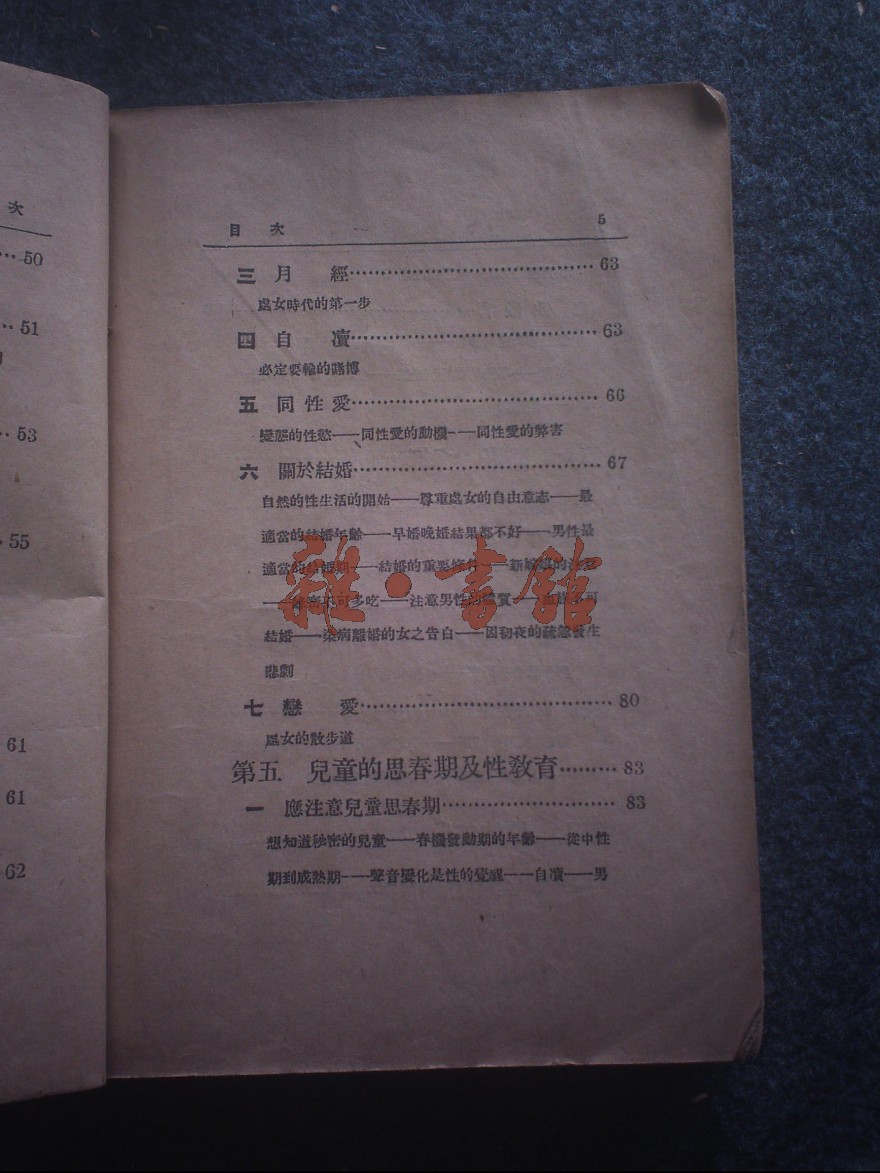 次
50
51
53
55
61
61
62
目次 5
三 月經 63
處女時代的第一步
四 自凟 63
必定要輸的賭博
五 同性愛 66
變態的性慾——同性愛的動機——同性愛的弊害
六 關於結婚 67
自然的性生活的開始——尊重處女的自由意志——最
適當的結婚年齡——早婚晚婚結果都不好——男性最
適當的結婚期——結婚的重要條件——新婚
可多吃——注意男性的 質—— 可
結婚——染病離婚的女之告白——因初夜的疏忽發生
悲劇
七 戀愛 80
處女的散步道
第五 兒童的思春期及性教育 83
一 應注意兒童思春期 83
想知道秘密的兒童——春機發動期的年齡——從中性
期到成熟期——聲音變化是性的覺醒——自凟——男
雜·書館